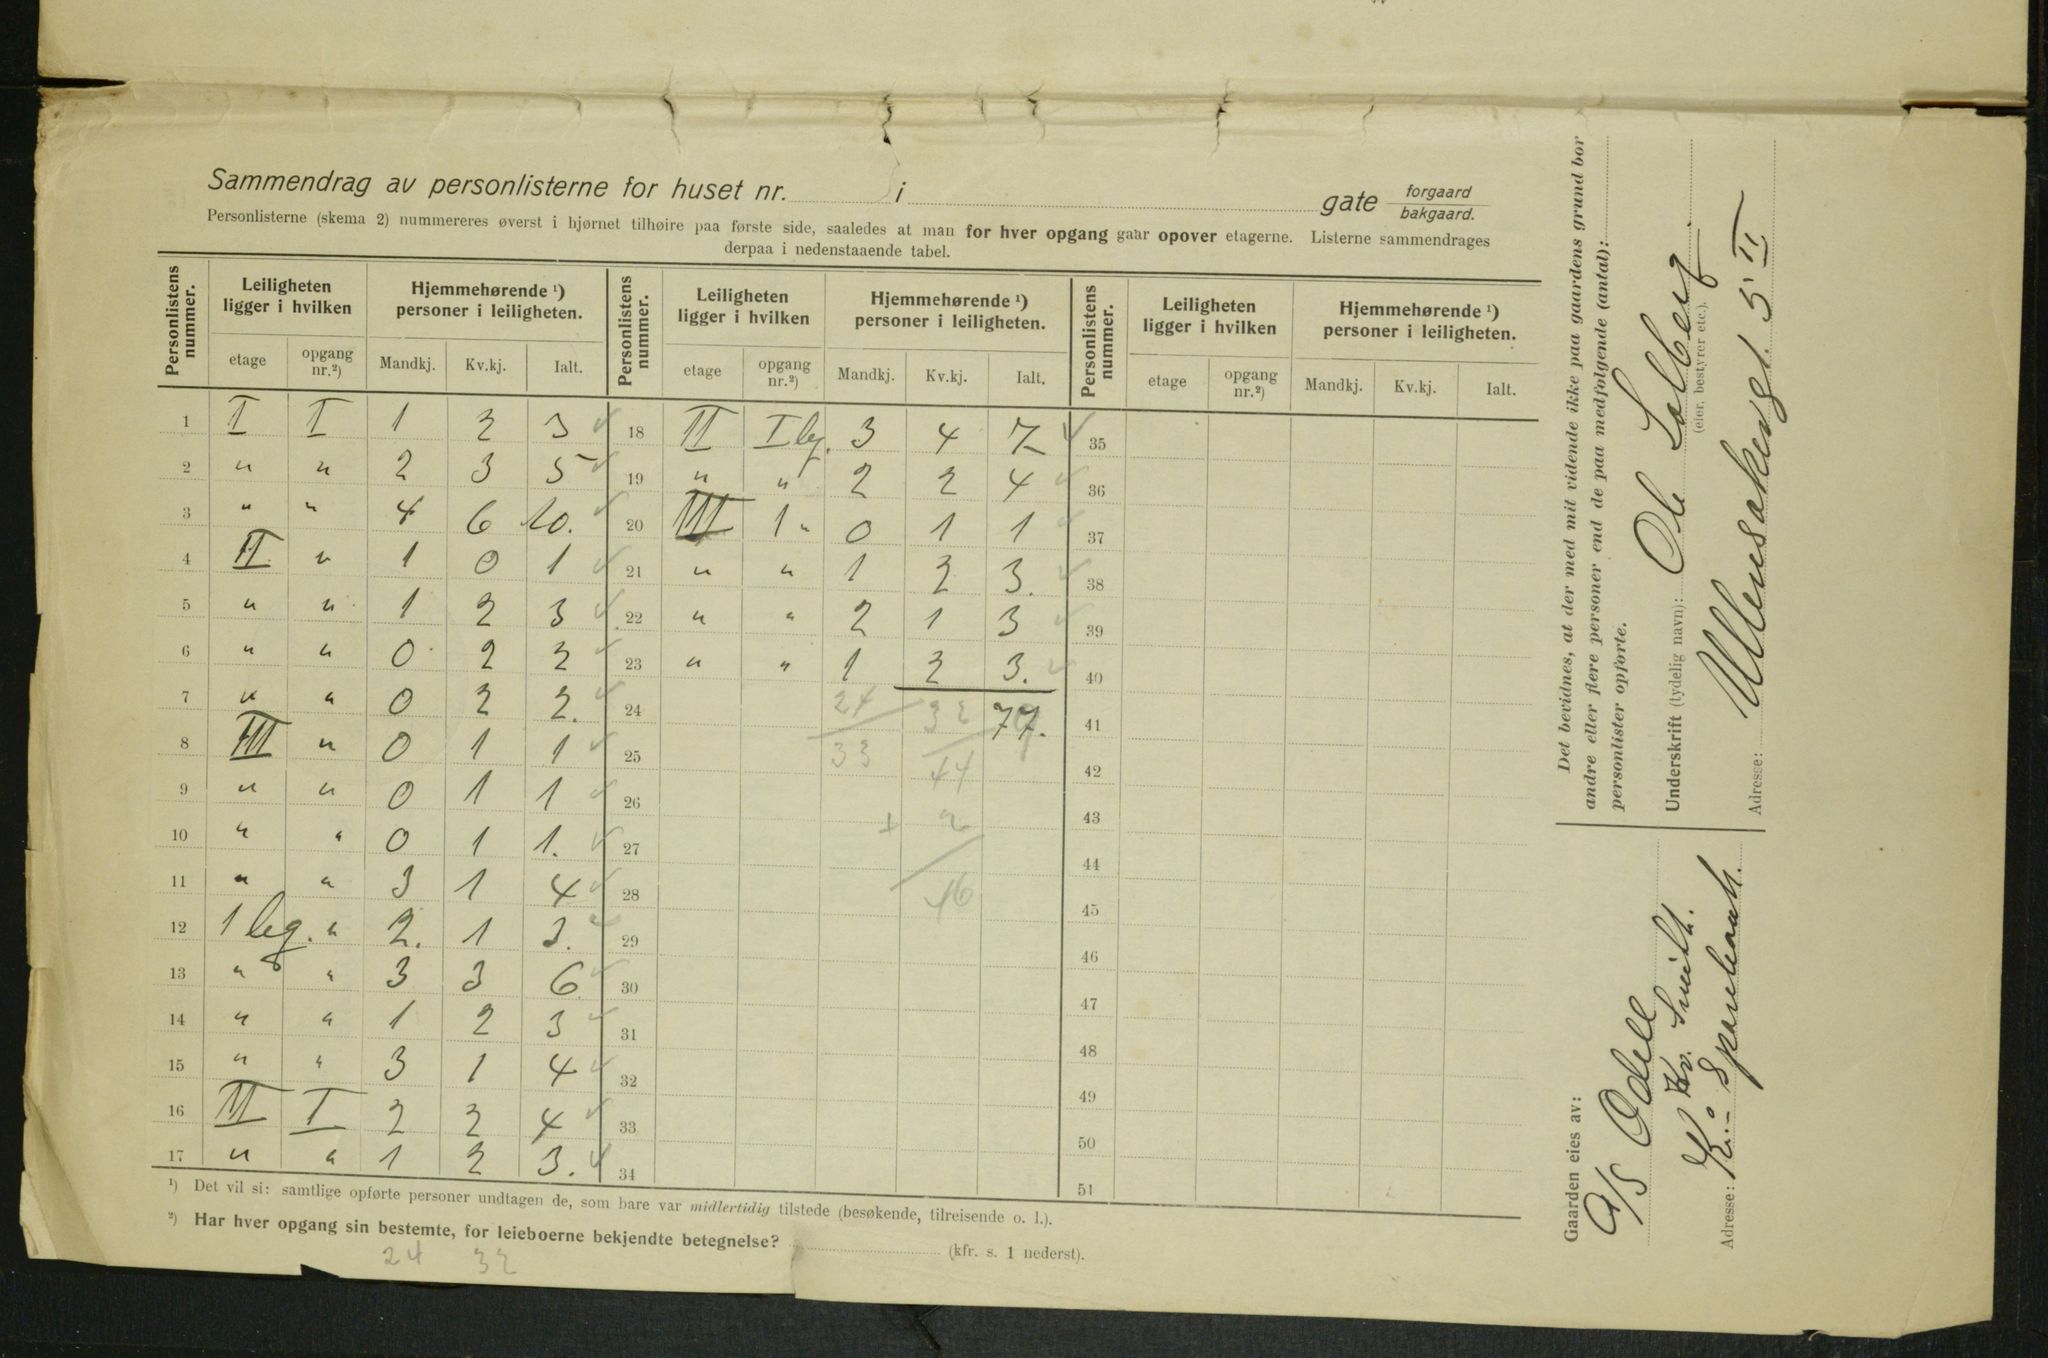 Sammendrag av personlisterne for huset nr. i gate forgaard bakgaard.
Personlisterne (skema 2) nummereres øverst i hjørnet tilhøire paa første side, saaledes at man for hver opgang gaar opover etagerne. Listerne sammendrages
derpaa i nedenstaaende tabel.
Personlistens nummer. Leiligheten ligger i hvilken Hjemmehørende ¹) personer i leiligheten. Personlistens nummer. Leiligheten ligger i hvilken Hjemmehørende ¹) personer i leiligheten. Personlistens nummer. Leiligheten ligger i hvilken Hjemmehørende ¹) personer i leiligheten.
etage opgang nr.²) Mandkj. Kv.kj. Ialt. etage opgang nr.²) Mandkj. Kv.kj. Ialt. etage opgang nr.²) Mandkj. Kv.kj. Ialt.
1 I I 1 2 3 18 II I bg. 3 4 7 35
2 " " 2 3 5 19 " " 2 2 4 36
3 " " 4 6 10. 20 III 1 " 0 1 1 37
4 II " 1 0 1 21 " " 1 2 3. 38
5 " " 1 2 3 22 " " 2 1 3 39
6 " " 0 2 2 23 " " 1 2 3. 40
7 " " 0 2 2. 24 24 32 77. 41
8 III " 0 1 1 25 33 44 42
9 " " 0 1 1 26 + 2 43
10 " " 0 1 1. 27 44
11 " " 3 1 4 28 46 45
12 1 bg. " 2. 1 3. 29 46
13 " " 3 3 6 30 47
14 " " 1 2 3 31 48
15 " " 3 1 4 32 49
16 II I 2 2 4 33 50
17 " " 1 2 3. 34 51
¹) Det vil si: samtlige opførte personer undtagen de, som bare var midlertidig tilstede (besøkende, tilreisende o. l.).
²) Har hver opgang sin bestemte, for leieboerne bekjendte betegnelse? (kfr. s. 1 nederst).
24 32
Det bevidnes, at der med mit vidende ikke paa gaardens grund bor
andre eller flere personer end de paa medfølgende (antal):
personlister opførte.
Underskrift (tydelig navn): Ole Solberg
(eier, bestyrer etc.).
Adresse: Ullensakergt 5 II
Gaarden eies av:
A/S Odell
Kr. Smith.
Adresse: K:a Sparebank.